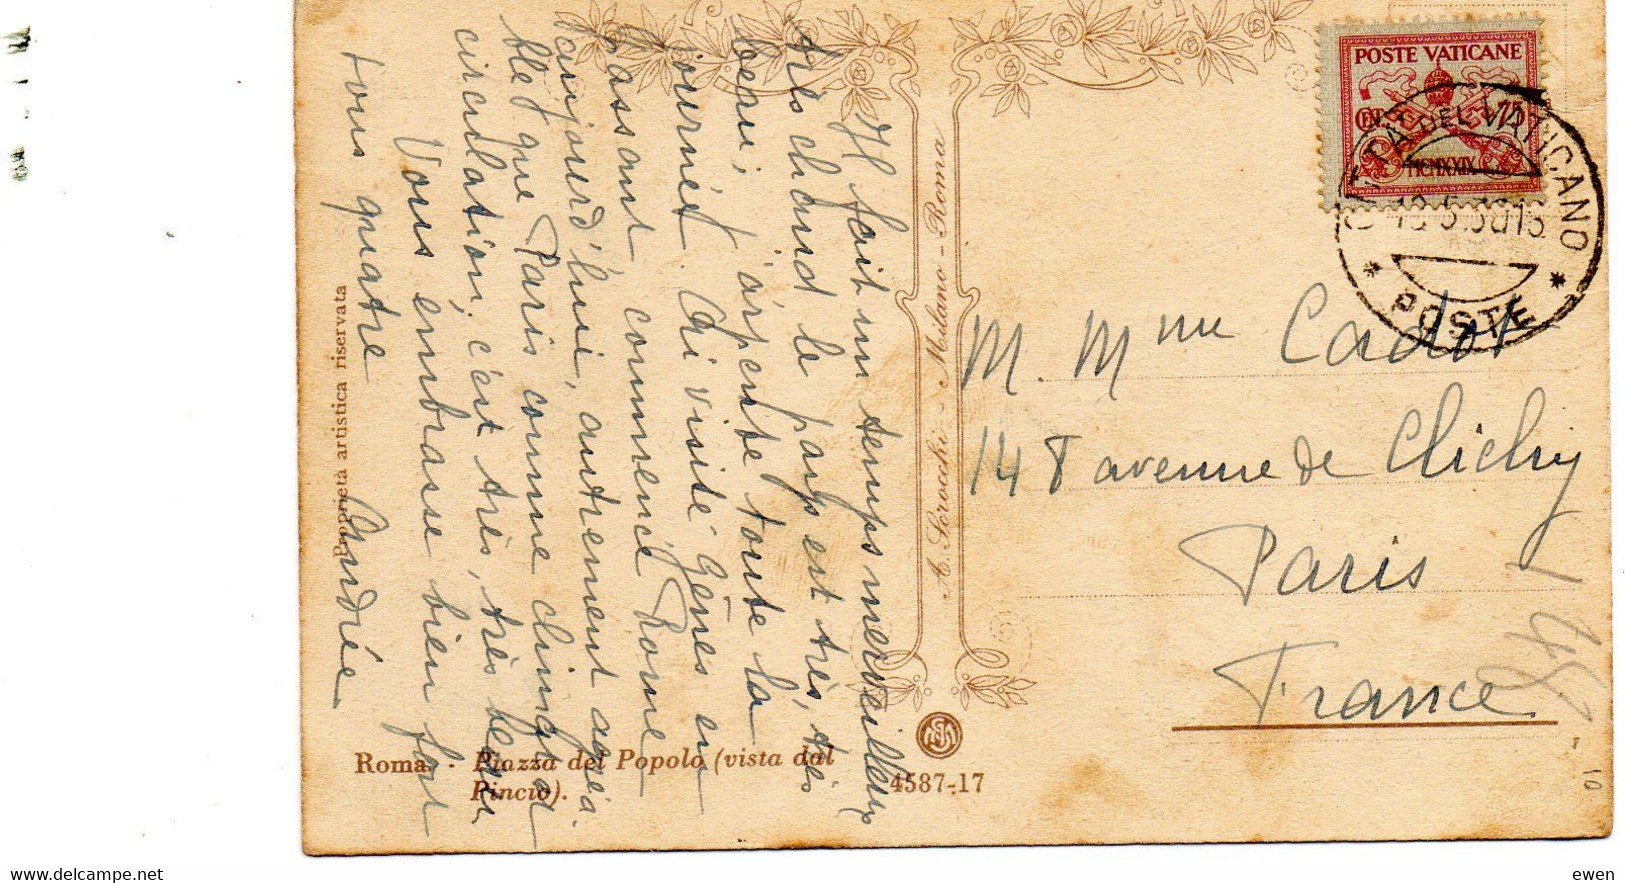 Il fait un temps merveilleux
très chaud le pays est très, très
beau; j'arpente toute la
journée. Ai visité Gênes en
passant, commence Rome
aujourd'hui, autrement agréa
ble que Paris comme climat
circulation. c'est très, très beau
Vous embrasse bien fort
tous quatre
Andrée
Proprietà artistica riservata
A. Scrocchi - Milano - Roma
Roma. - Piazza del Popolo (vista dal
Pincio).
4587-17
POSTE VATICANE
CENT. 75
MCMXXIX
CITTÀ DEL VATICANO
POSTE
M. Mme Cadot
148 avenue de Clichy
Paris
France
10
delcampe.net
ewen